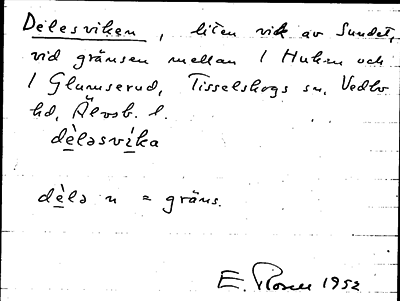 Delesviken, liten vik av Sundet,
vid gränsen mellan 1 Huken och
1 Glumserud, Tisselskogs sn, Vedbo
hd, Älvsb. l.
dèləsvika
dèlə n = gräns.
E. 1952